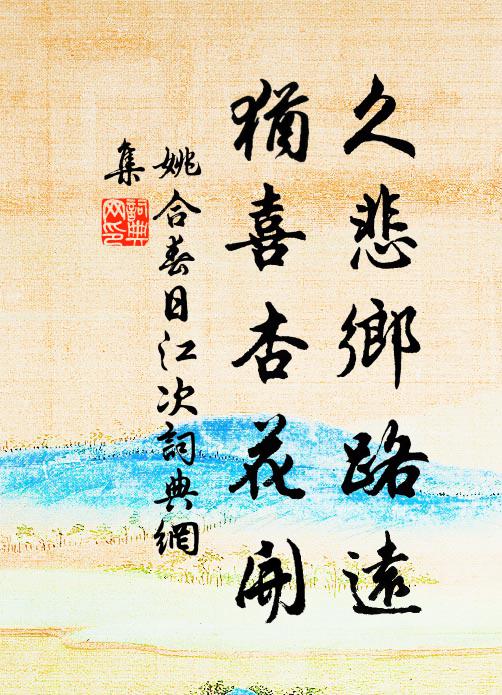 久悲鄉路遠
猶喜杏花開
姚合春日江次詞典網
集
詞典
网印